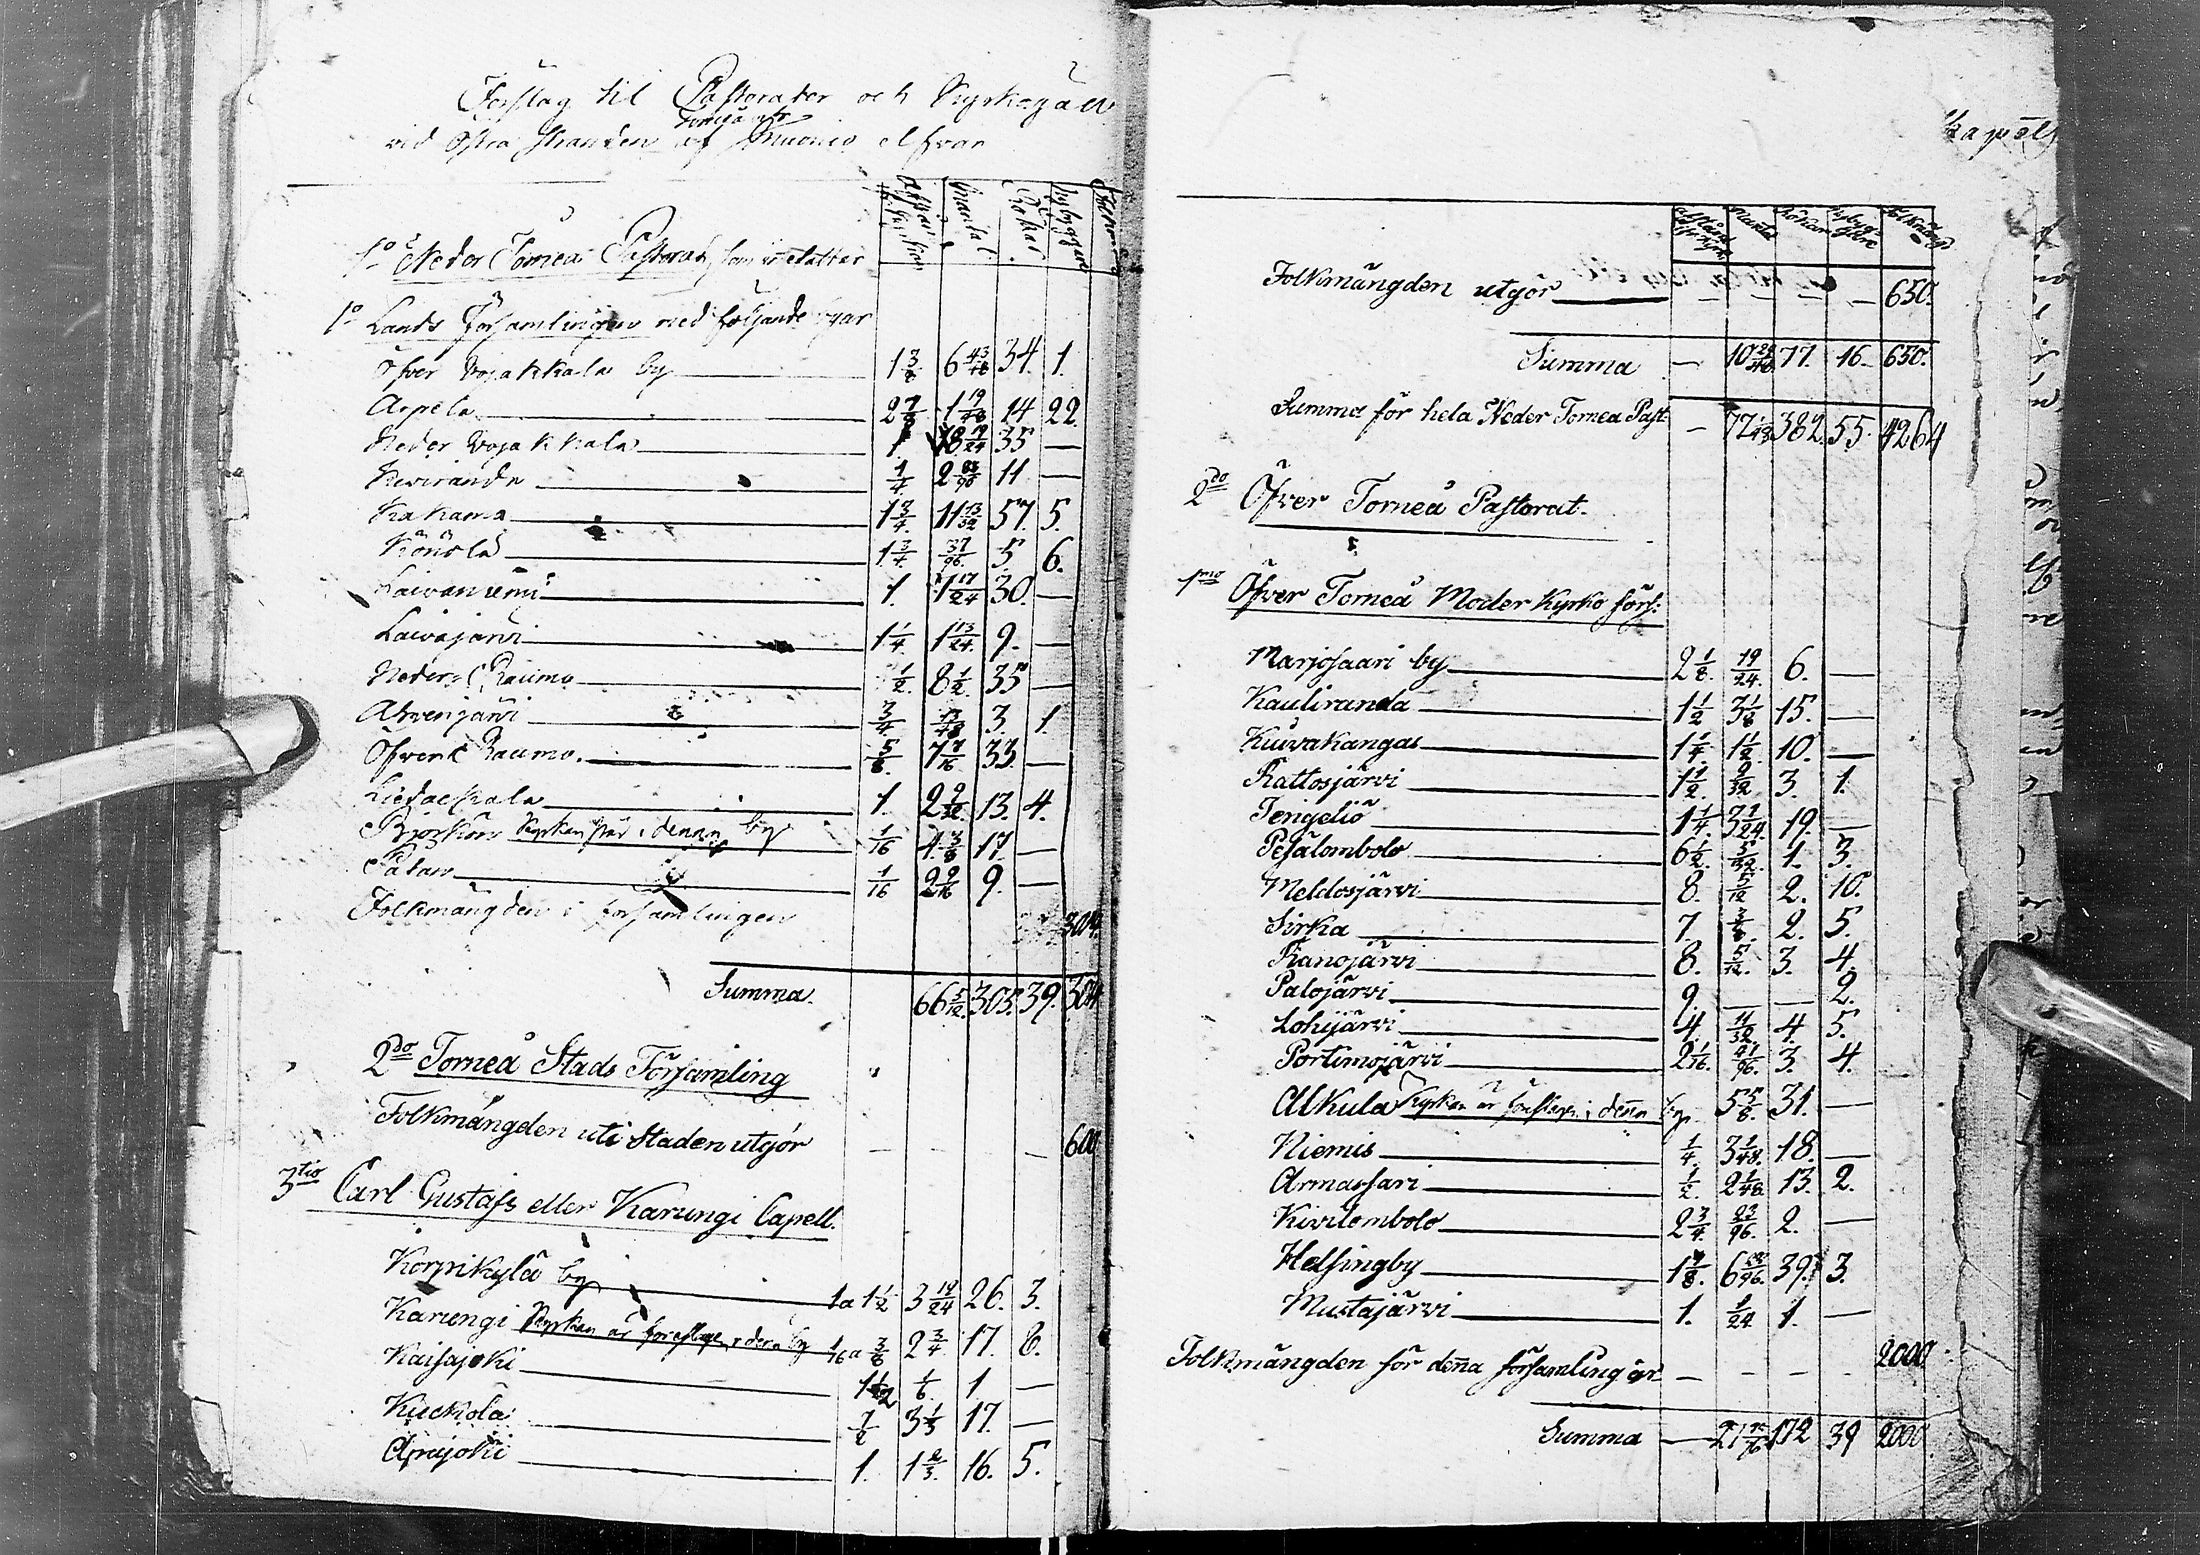 Förslag til Pastorater och Kyrkogäll
vid östra stranden af Torneå och Muonio elfvar
Afstånd fr. Kyrkan Mantal Rökar Nybyggare Folkmängd
1o Neder Torneå Pastorat, som innefattar
1o Lands Församlingen med följande byar
Öfver Vojakkala by 1 3/8 6 43/48 34. 1.
Arpela 2 7/8 1 19/48 14 22
Neder Vojakkala 1 8 19/24 35 —
Kiviranda 1/4. 11 —
Kakama 1 3/4. 11 13/32 57. 5.
Könölä 1 3/4. 37/96. 5. 6.
Laivaniemi 1. 1 17/24 30. —
Laivajärvi 1 1/4 1 13/24. 9. —
Neder Raumo 1/2. 8 1/2. 35 —
Ahvenjärvi 3/4 3. 1.
Öfver Raumo. 5/8. 7 7/16 33. —
Liedackala 1. 2 9/32. 13. 4.
Björkön Kyrkan står i denna by 1/16 4 3/8 17. —
Pätar 1/16 2 9/16 9. —
Folkmängden i församlingen 3014.
Summa. 66 5/12. 305. 39. 3014
2do Torneå Stads Församling
Folkmängden uti Staden utgör — — — 600
3tio Carl Gustafs eller Karungi Capell.
Korpikylä by 1 a 1 1/2 3 19/24 26. 3.
Karungi Kyrkan är föreslagen i denna by 1/16 a 3/8 2 3/4 17. 8.
Kaisajoki 1 1/2 1/6. 1 —
Kuckola 1/2 3 1/3 17. —
Apajoki 1. 1 2/3. 16. 5.
Kapell
Afstånd fr. Kyrk. Mantal Rökar Nybyggare Folkmängd
Folkmängden utgör — — — — 650.
Summa — 10 77. 16. 650.
Summa för hela Neder Torneå Past: — 77 382. 55. 4264
2do Öfver Torneå Pastorat.
1mo Öfver Torneå Moder Kyrko förs:
Marjosaari by 2 1/8. 19/24. 6. —
Kauliranda 1 1/2 3 1/8 15. —
Kuivakangas 1 1/4. 1 1/2. 10. —
Rattosjärvi 1 1/2. 9/32 3. 1.
Jengeliö 1 1/4. 3 7/24. 19. —
Pesälombolo 6 1/2. 1. 3.
Meldosjärvi 8. 5/12 2. 10.
Sirka 7. 3/8. 2. 5.
Ranojärvi 8. 5/12. 3. 4.
Palojärvi 9. — — 2.
Lohijärvi 4. 11/32. 4. 5.
Portimojärvi 2 1/16. 21/96. 3. 4.
Alkula Kyrkan är föreslagen i denna by 5 5/8. 31. —
Niemis 1/4. 3 1/48. 18. —
Armassari 1/2. 2 1/48. 13. 2.
Kivilombolo 2 3/4. 23/96. 2. —
Helsingby 1 7/8. 39. 3.
Mustajärvi 1. 1/24 1. —
Folkmängden för denna församling är — — — — 2000.
Summa — 172 39 2000